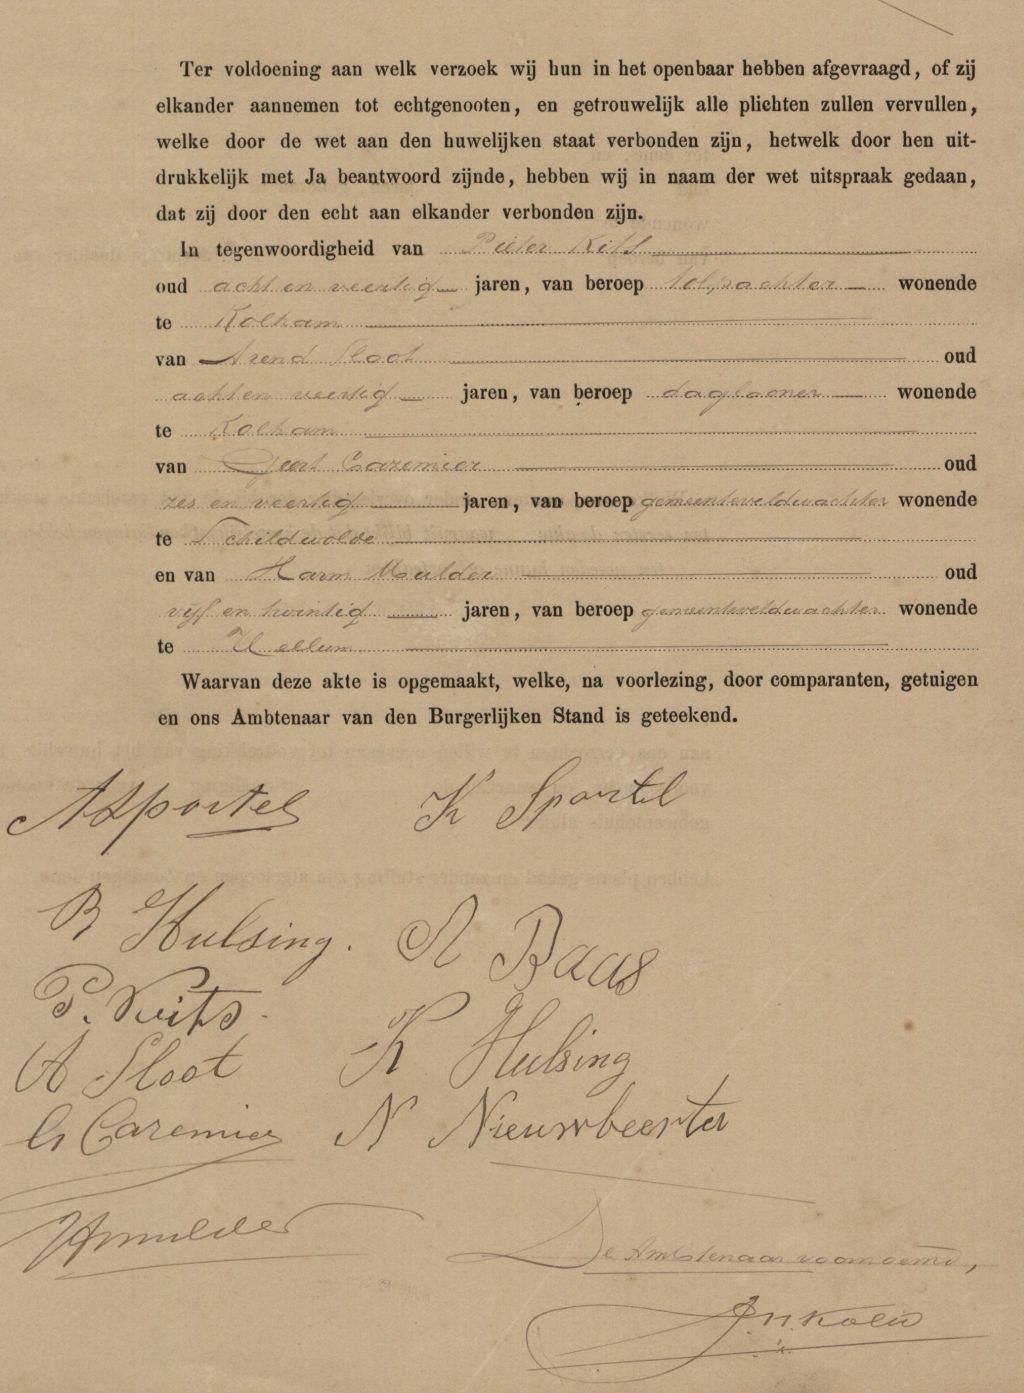 Ter voldoening aan welk verzoek wij hun in het openbaar hebben afgevraagd, of zij
elkander aannemen tot echtgenooten, en getrouwelijk alle plichten zullen vervullen,
welke door de wet aan den huwelijken staat verbonden zijn, hetwelk door hen uit-
drukkelijk met Ja beantwoord zijnde, hebben wij in naam der wet uitspraak gedaan,
dat zij door den echt aan elkander verbonden zijn.
In tegenwoordigheid van Pieter
oud acht en veertig jaren, van beroep tolpachter wonende
te Kolham
van Arend Sloot oud
acht en veertig jaren, van beroep daglooner wonende
te Kolham
van Geert Cazemier oud
zes en veertig jaren, van beroep gemeenteveldwachter wonende
te Schildwolde
en van Harm Mulder oud
vijf en twintig jaren, van beroep gemeenteveldwachter wonende
te Hellum
Waarvan deze akte is opgemaakt, welke, na voorlezing, door comparanten, getuigen
en ons Ambtenaar van den Burgerlijken Stand is geteekend.
A Sportel K Sportel
R Hulsing. A Baas
P. Kuits K Hulsing
A Sloot
G Cazemier N Nieuwbeerter
H Mulder
De Ambtenaar voornoemd,